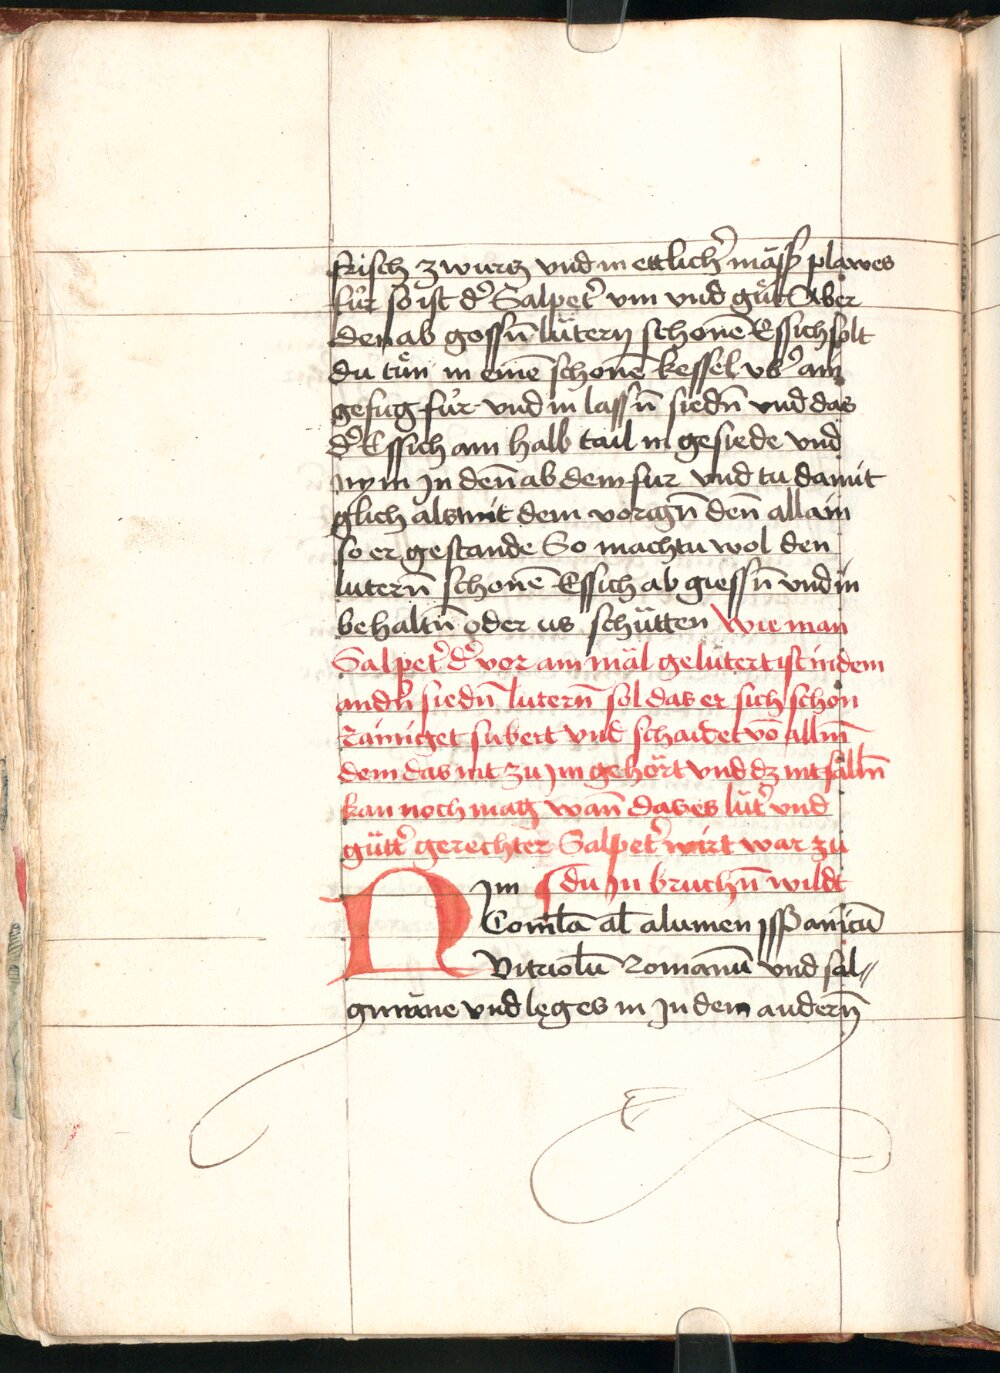 frisch zwurtz vnd in ettlicher̛ mäß plawes
für so ist d̛ Salpet̛ vin vnd gůt Aber
den ab gossn̄ lütern schonē Essich solt
du tůn in einē schonē kessel vb̛ ain
gefug für vnd in lassn̄ siedn̄ vnd das
d̛ Essich ain halb tail in gesiede vnd
nym jn den̄ ab dem fur vnd tu damit
glich als mit dem vorign̄ den̄ allain
so er gestande So machtu wol den
lutern̄ schonē Essich ab giessn̄ vnd in
behaltn̄ oder us schütten Wie man
Salpet̛ d̛ vor ain mäl gelutert ist in dem
andn̛ siedn̄ lutern̄ sol das er sich schon
rainiget subert vnd schaidet vō allm̄
dem das nit zu jm gehört vnd dz nit salln̄
kan noch mag wan̄ daves lüt̛ vnd
gütt̛ gerechter Salpet̛ wirt war zu
Nim du jn bruchn̄ wildt
Coml̄a al̄ alumen jsspanicū
Vitriolū Romanū vnd sal//
gm̄ane vnd leg es in jn dem andern̄